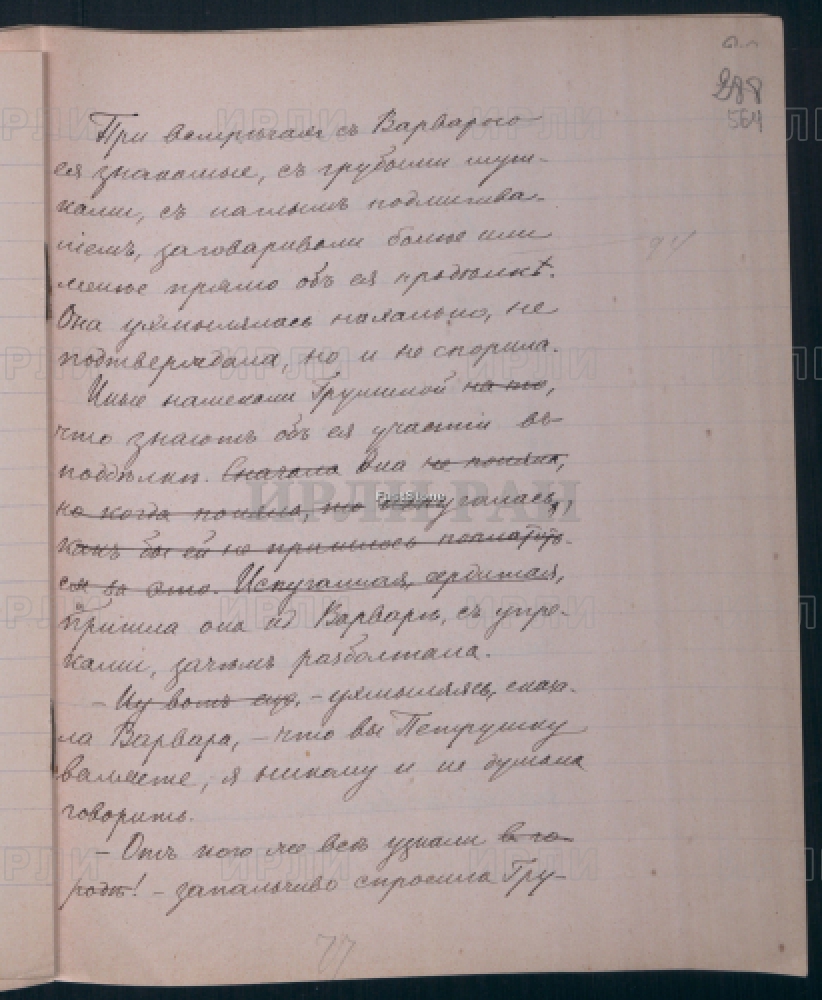 288
564
При встрѣчахъ съ Варварою
ея знакомые, съ грубыми шут-
ками, съ наглымъ подмигива-
ніемъ, заговаривали болѣе или
менѣе прямо объ ея продѣлкѣ.
Она ухмылялась нахально, не
подтверждала, но и не спорила.
Иные намекали Грушиной на то,
что знаютъ объ ея участіи въ
поддѣлкѣ. Сначала Она не поняла,
но когда поняла, то испугалась,
какъ бы ей не пришлось поплатить-
ся за это. Испуганная, сердитая,
пришла она къ Варварѣ, съ упре-
ками, зачѣмъ разболтала.
– Ну вотъ еще, – ухмыляясь, сказа-
ла Варвара, – что вы Петрушку
валяете, я никому и не думала
говорить.
– Отъ кого же всѣ узнали въ го-
родѣ! – запальчиво спросила Гру-
77
ИРЛИ РАН